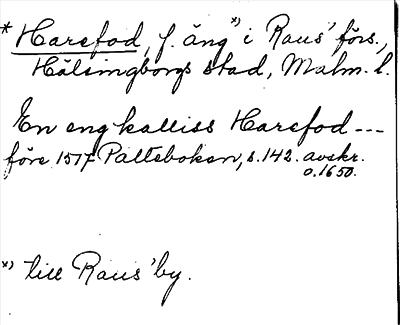 * Harefod, f. äng *) i Raus' förs.,
Hälsingborgs stad, Malm. l.
En eng kalliss Harefod ---
före 1517 Palteboken, s. 142. avskr.
o. 1650.
*) till Raus' by.